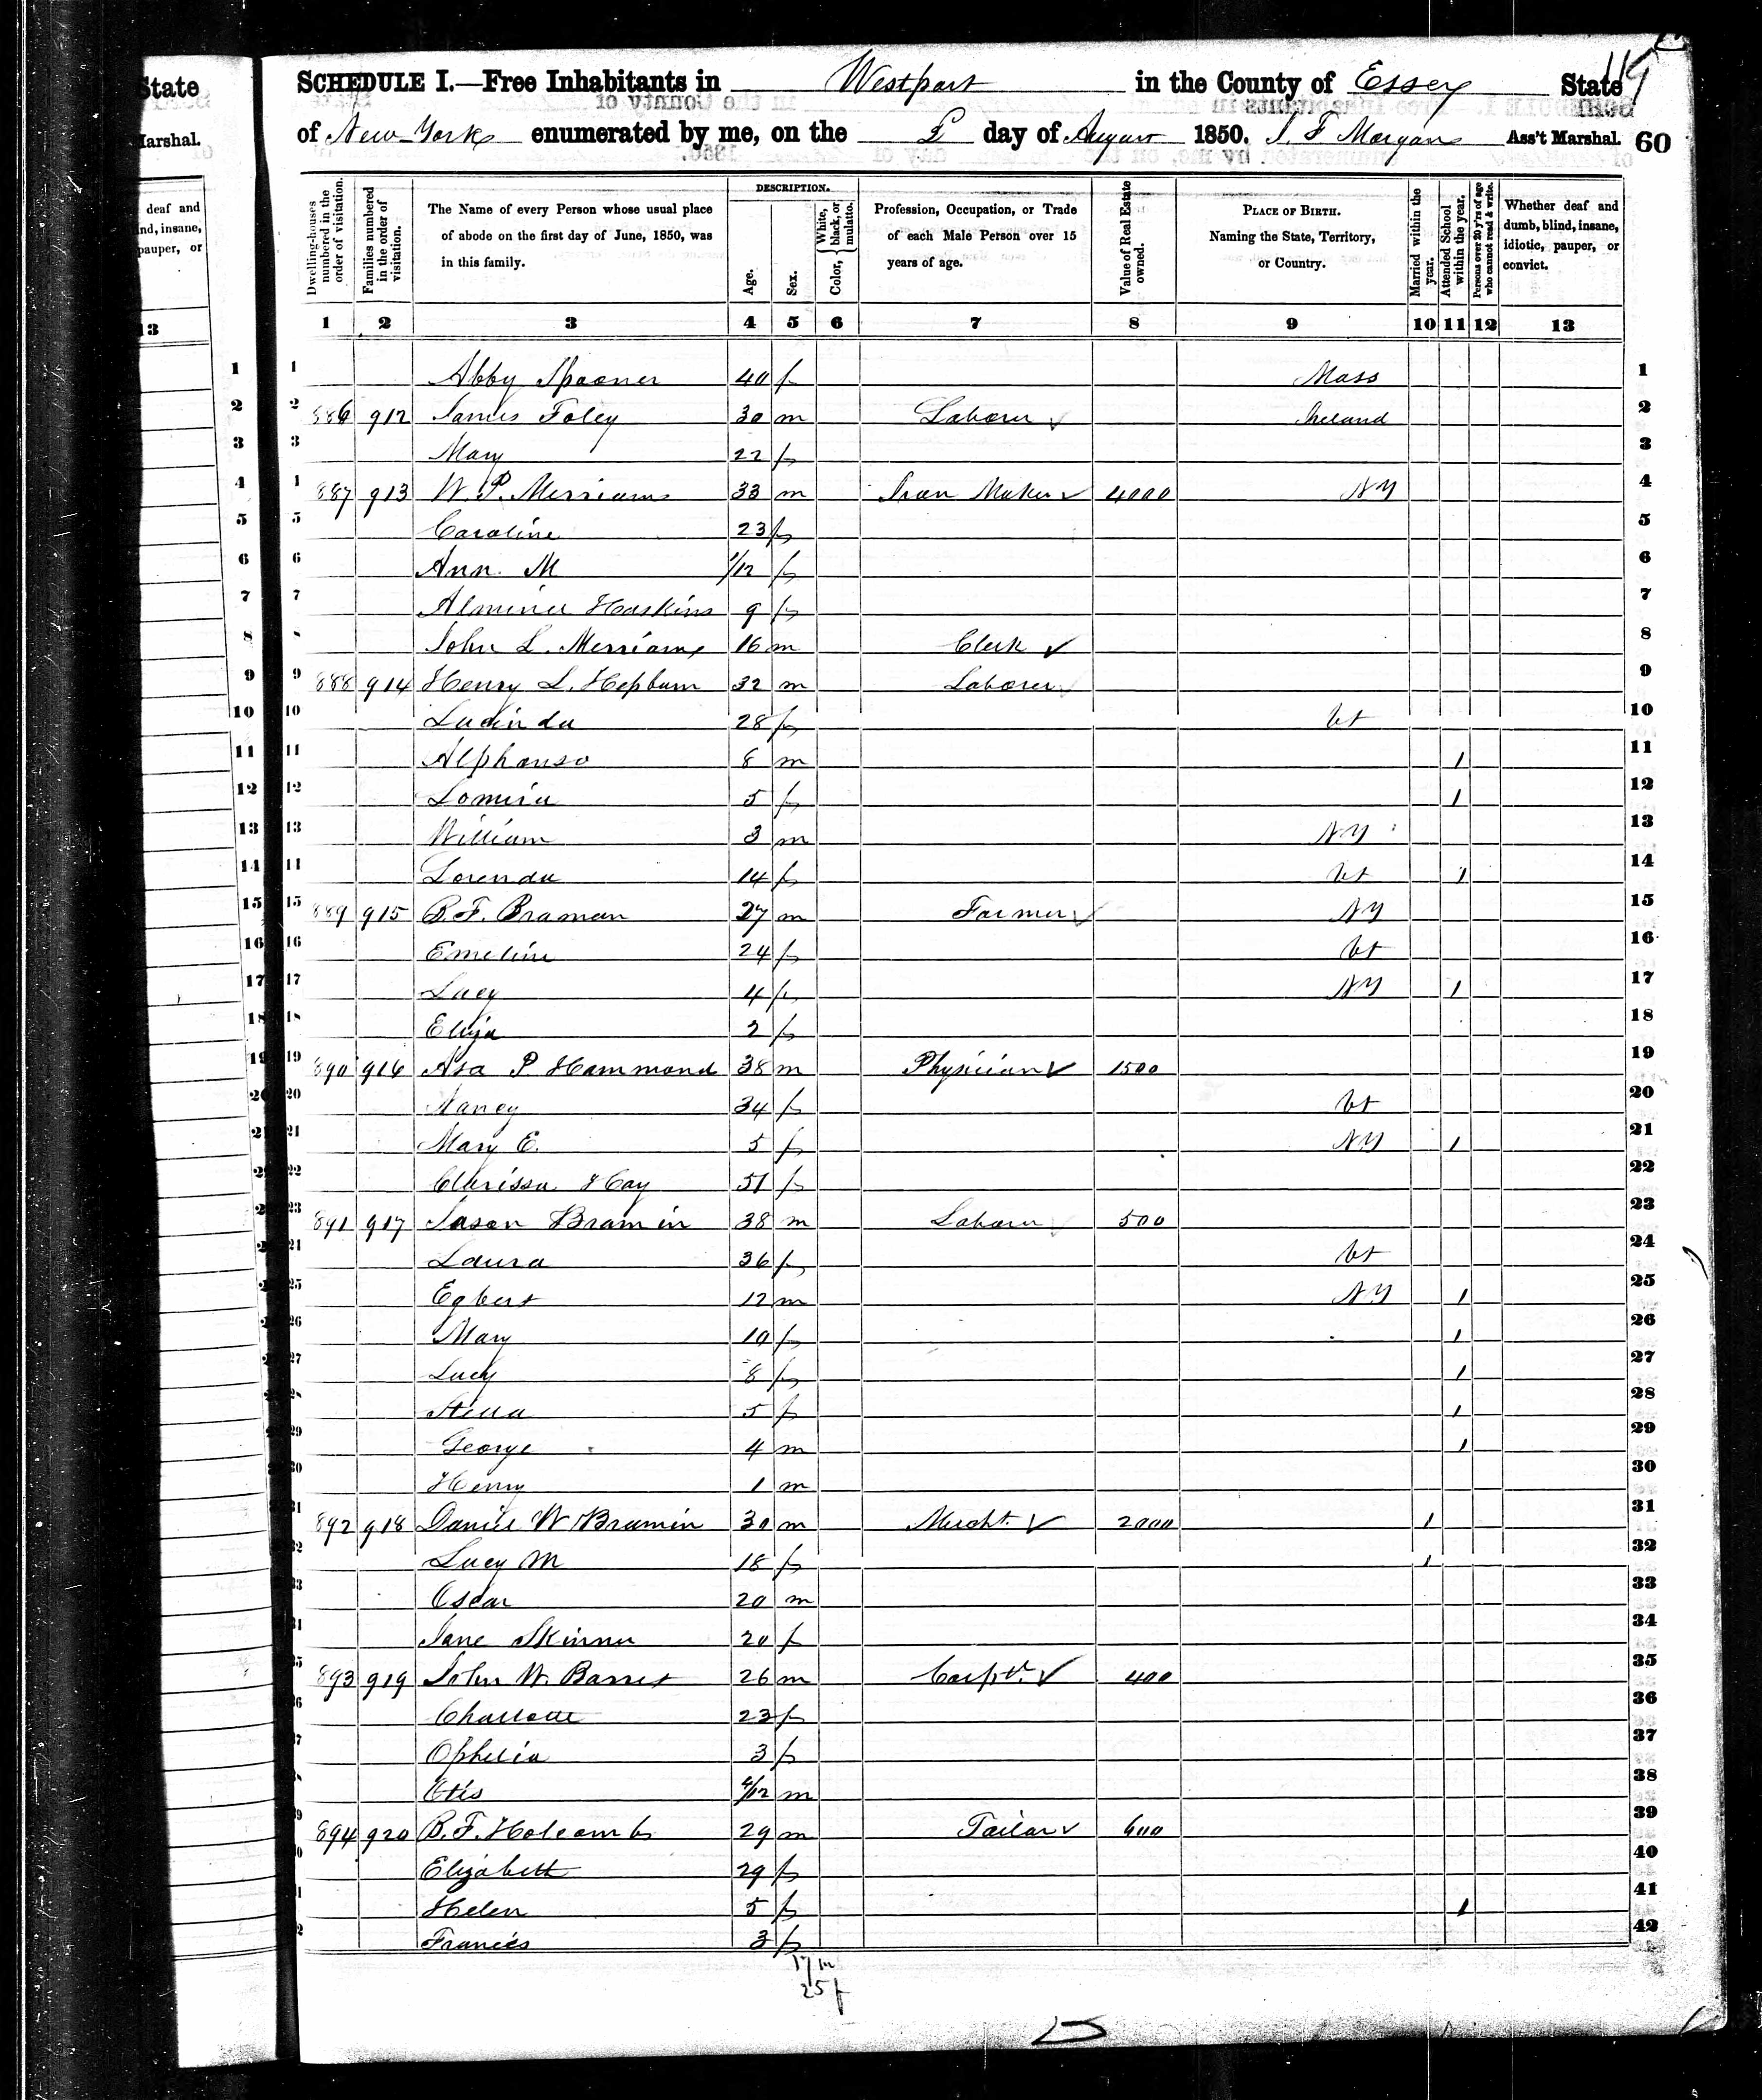 State
Marshal.
deaf and
nd, insane,
pauper, or
13
SCHEDULE I.—Free Inhabitants in Westport in the County of Essex State
of New York enumerated by me, on the day of August 1850. F Morgan Ass't Marshal. 60
Dwelling-houses numbered in the order of visitation.
Families numbered in the order of visitation.
The Name of every Person whose usual place of abode on the first day of June, 1850, was in this family.
DESCRIPTION.
Age.
Sex.
Color, { White, black, or mulatto.
Profession, Occupation, or Trade of each Male Person over 15 years of age.
Value of Real Estate owned.
PLACE OF BIRTH. Naming the State, Territory, or Country.
Married within the year.
Attended School within the year.
Persons over 20 y'rs of age who cannot read & write.
Whether deaf and dumb, blind, insane, idiotic, pauper, or convict.
1 2 3 4 5 6 7 8 9 10 11 12 13
1 Abby Spooner 40 f Mass 1
2 886 912 James Foley 30 m Laborer Ireland 2
3 Mary 22 f 3
4 887 913 W. P. Merriam 33 m Iron Maker 4000 NY 4
5 Caroline 23 f 5
6 Ann. M 1/12 f 6
7 Almina Haskins 9 f 7
8 John L. Merriam 16 m Clerk 8
9 888 914 Henry L. Hepburn 32 m Laborer 9
10 Lucinda 28 f Vt 10
11 Alphonso 8 m 1 11
12 Lomira 5 f 1 12
13 William 3 m NY 13
14 Lorenda 14 f Vt 1 14
15 889 915 B. F. Braman 27 m Farmer NY 15
16 Emeline 24 f Vt 16
17 Lucy 4 f NY 1 17
18 Eliza 2 f 18
19 890 916 Asa P Hammond 38 m Physician 1500 19
20 Nancy 34 f Vt 20
21 Mary E. 5 f NY 1 21
22 Clarissa Hay 51 f 22
23 891 917 Jason Bramin 38 m Laborer 500 23
24 Laura 36 f Vt 24
25 Egbert 12 m NY 1 25
26 Mary 10 f 1 26
27 Lucy 8 f 1 27
28 Stella 5 f 1 28
29 George 4 m 1 29
30 Henry 1 m 30
31 892 918 Daniel W Bramin 30 m Mercht. 2000 1 31
32 Lucy M 18 f 1 32
33 Oscar 20 m 33
34 Jane Skinner 20 f 34
35 893 919 John W. Barret 26 m Carptr. 400 35
36 Charlotte 23 f 36
37 Ophelia 3 f 37
38 Otis 4/12 m 38
39 894 920 B. F. Holcomb 29 m Tailor 600 39
40 Elizabeth 29 f 40
41 Helen 5 f 1 41
42 Francis 3 f 42
17 m
25 f